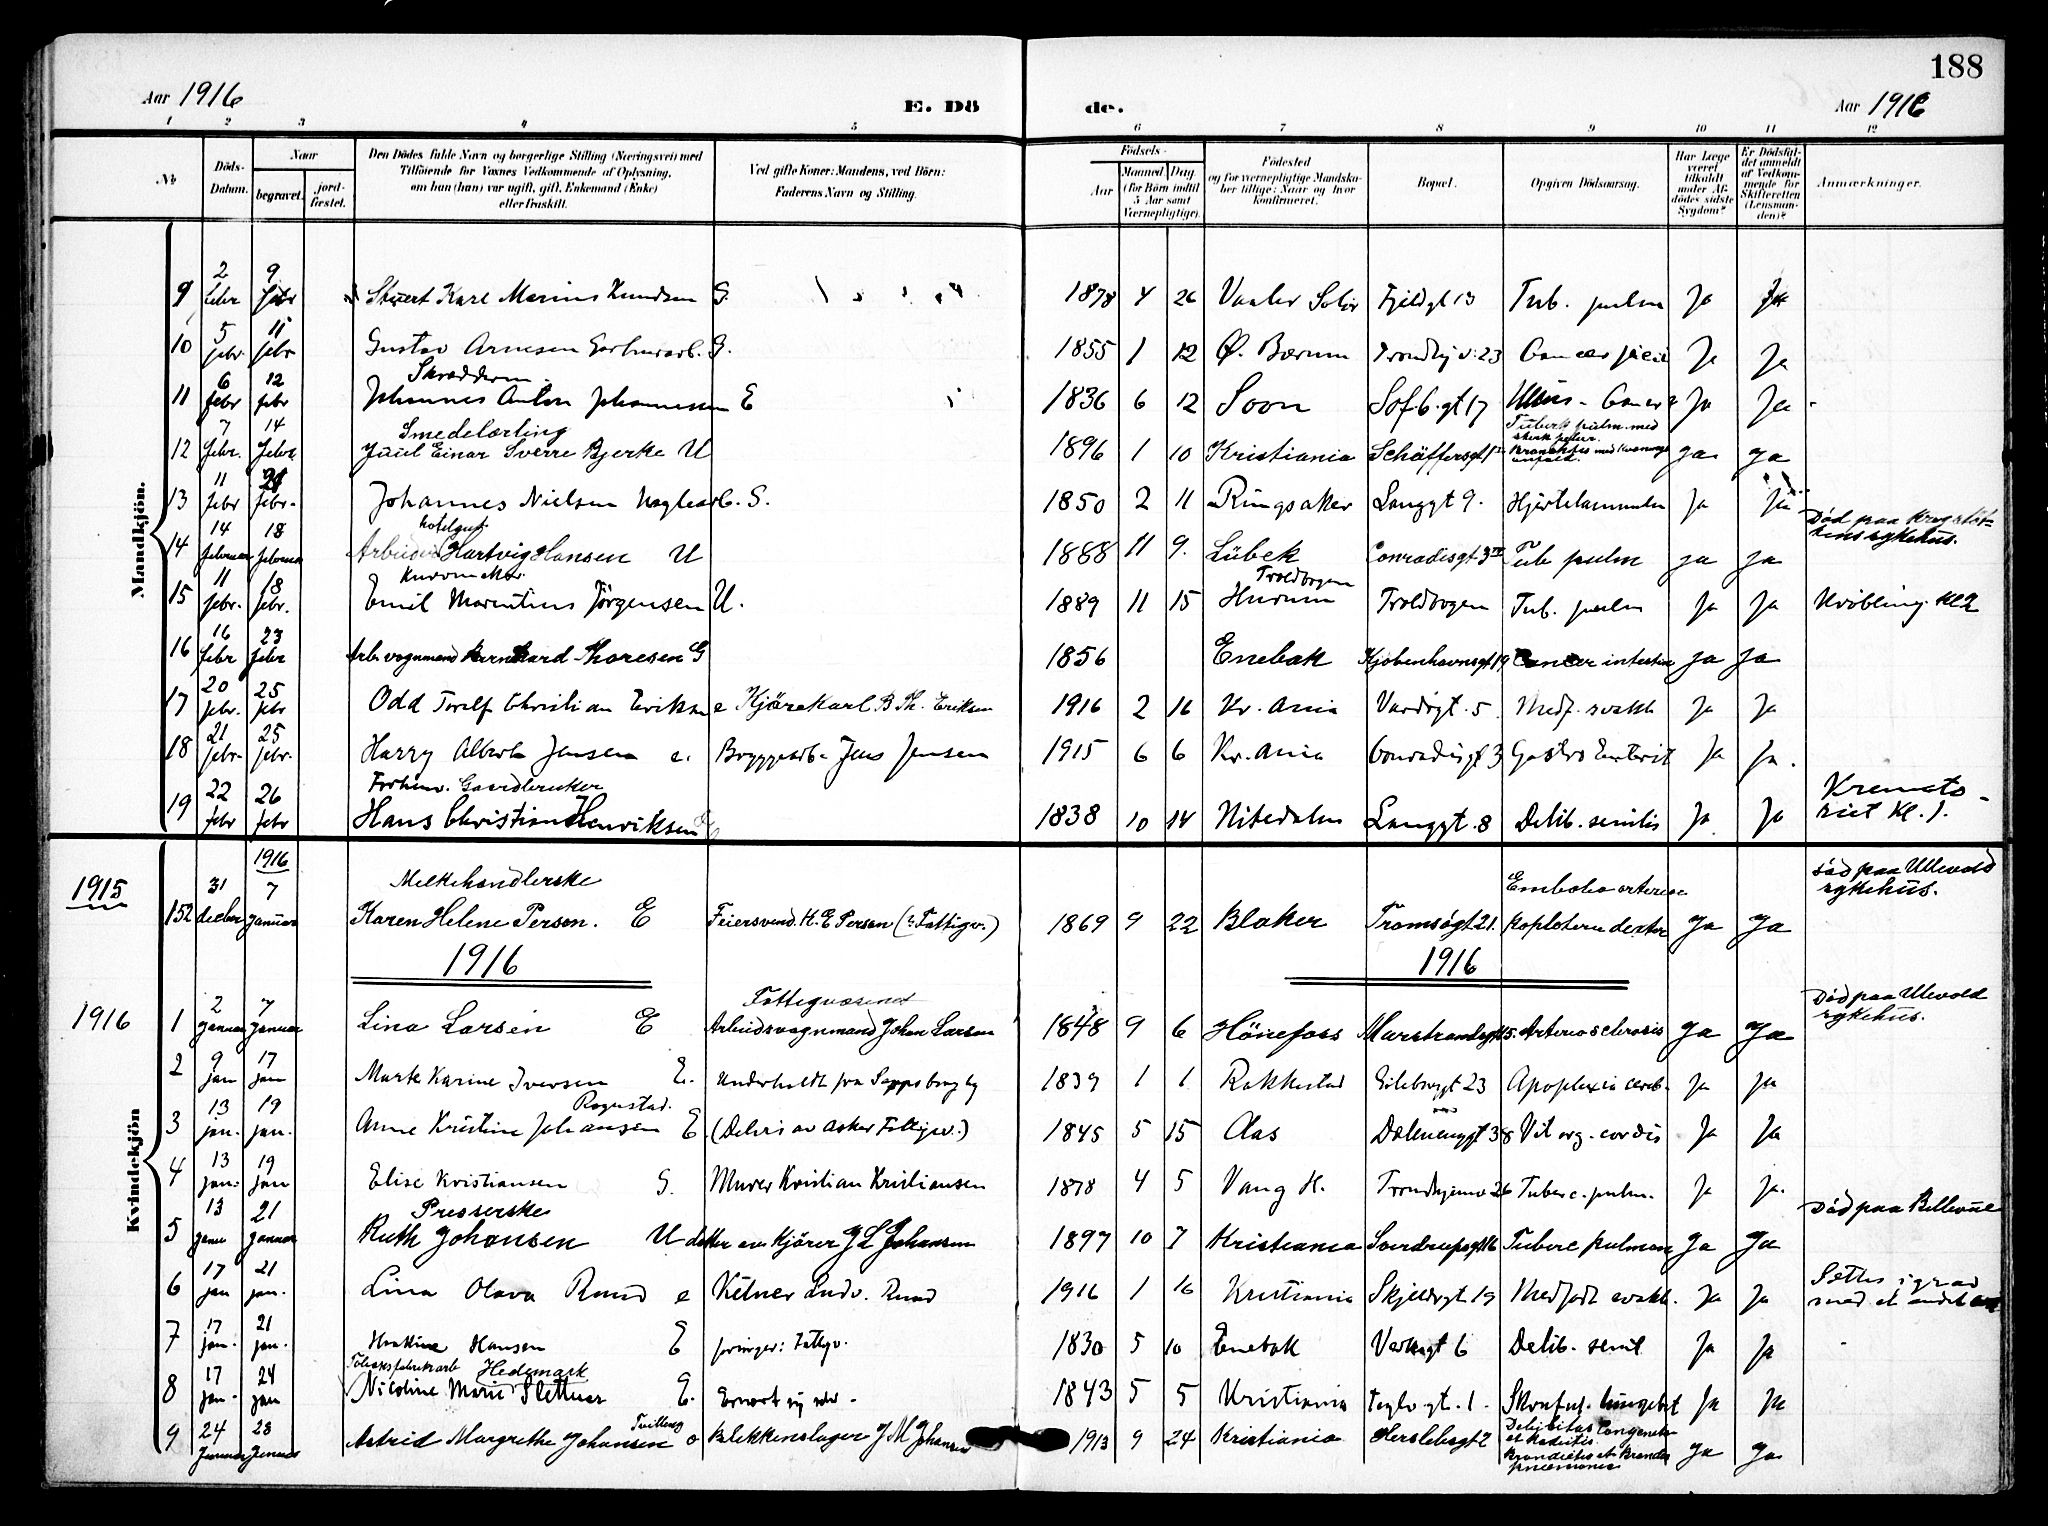 188
Aar 1916 E. Dö de. Aar 1916
1 2 3 4 5 6 7 8 9 10 11 12
No. Döds-Datum. Naar begravet. jordfæstet. Den Dödes fulde Navn og borgerlige Stilling (Næringsvei) med Tilföiende for Voxnes Vedkommende af Oplysning, om hun (han) var ugift, gift, Enkemand (Enke) eller fraskilt. Ved gifte Koner: Mandens, ved Börn: Faderens Navn og Stilling. Födsels- Aar Maaned Dag (for Börn indtil 5 Aar samt Værnepligtige). Födested og for værnepligtige Mandskaber tillige: Naar og hvor konfirmeret. Bopæl. Opgiven Dödsaarsag. Har Læge været tilkaldt under Afdödes sidste Sygdom? Er Dödsfaldet anmeldt af Vedkommende for Skifteretten (Lensmanden)? Anmærkninger.
Mandkjön.
9 2 febr 9 febr Karl Marius Knudsen G. 1878 4 26 Vaaler Solör Fjeldgt 13 Tub. pulm Ja Ja
10 5 febr. 11 febr Gustav Arnesen G. 1855 1 12 Ø. Bærum Trondhj.v. 23 Cancer Ja Ja
Skrædderm.
11 6 febr 12 febr Johannes Anton Johannessen E 1836 6 12 Soon Sof.b.gt 17 Ulcus - Cancer? Ja Ja
Smedelærling Tuberk pulm. med
12 7 febr. 14 febr Juul Einar Sverre Bjerke U 1896 1 10 Kristiania Schäffersgt Ja Ja
13 11 febr 21 febr. Johannes Nielsen G. 1850 2 11 Ringsaker Langgt 9. Hjertelammelse Ja Ja
14 14 februar 18 februar Arbeider Hartvig Hansen U 1888 11 9. Lübek Conradisgt 3 Tub pulm Ja Ja Död paa Krogstöttens sykehus.
Troldbogen
15 11 febr. 18 febr. Emil Martinius Jörgensen U. 1889 11 15 Hurum Troldbogen Tub. pulm Ja Ja Kvæbling. Kl 2
16 16 febr 23 febr Arb. vognmand Bernhard Thoresen G 1856 Enebak Kjøbenhavnsgt 19 Cancer intestin Ja Ja
17 20 febr. 25 febr Odd Torolf Christian Eriksen e Kjörekarl B. Th. Eriksen 1916 2 16 Kr.ania Vardögt. 5 Medf. svakh Ja Ja
18 21 febr. 25 febr. Harry Alberth Jensen e. Bryggearb. Jens Jensen 1915 6 6 Kr.ania Conradisgt 3 Gastro Enterit Ja Ja.
Forhenv. Gaardbruker
19 22 febr 26 febr Hans Christian Henriksen 1838 10 14 Nitedalen Langgt. 8 Debil. senilis Ja Ja Krematoriet Kl. 1.
Kvindekjön
1915 1916
Melkehandlerske
152 31 decbr 7 januar Karen Helene Person. E Feiersvend. K. E Person (: Fattigv.) 1869 9 22 Blaker Tromsögt 21. Embolia arteriae poplotea dexter Ja Ja död paa Ullevold sykehus.
1916 1916
1916
Fattigvæsenet
1 2 januar 7 januar Lina Larsen E Arbeidsvognmand Johan Larsen 1848 9 6 Hönefoss Marstrandsgt 15. Arteriosclerosis Ja Ja Död paa Ullevold sykehus.
2 9 jan 17 jan Marte Karine Iversen E. Underholdt fra Sarpsborg by 1839 1 1 Rakkestad Eilebergt 23 Apoplexia cereb. Ja Ja
Rognstad.
3 13 jan. 19 jan. Anne Kristine Johansen E. (Delvis av Asker Fattigv.) 1845 5 15 Aas Dælenenggt 38 Vit org. cordis Ja Ja
4 13 jan. 19 jan Elise Kristiansen G. Murer Kristian Kristiansen 1878 4 5 Vang H. Trondhjemsv 26 Tuberc. pulm. Ja Ja.
Presserske
5 13 januar 21 januar Ruth Johansen U datter av Kjörer J L Johansen 1897 10 7 Kristiania Sverdrupsgt 16 Tuberc pulmon Ja Ja Död paa Bellevue
6 17 jan 21 jan. Lina Olava Ruud e Kelner Ludv. Ruud 1916 1 16 Kristiania Skjeldrgt 19 Medfödt svakh. Ja Ja Sættes i grav med et andet
7 17 jan. 21 jan. Hansen E forsörget: Fattigv. 1830 5 10 Enebak Verksgt 6 Debil. senil Ja Ja
Tobaksfabrikarb Hedemark
8 17 jan. 24 jan Nicoline Marie Slettner E. 1843 5 5 Kristiania Teglv.gt. 1. Ja Ja
Tvilling
9 24 Januar 28 Januar Astrid Margrethe Johansen e Blekkenslager J M Johansen 1913 9 24 Kristiania Herslebsgt 2 Debilitas Congenita et Rachitis. Bronchitis et Broncho pneumonia Ja Ja